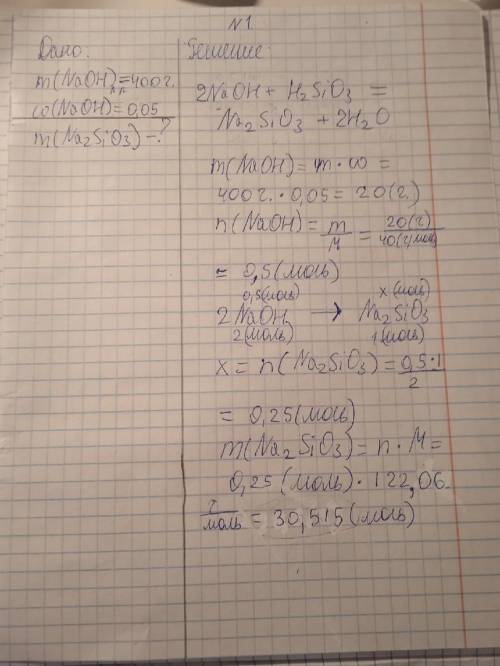 N1.
Дано:
m(NaOH)р.р.=400г.
ω(NaOH)=0,05
m(Na2SiO3)-?
Решение:
2NaOH + H2SiO3 =
Na2SiO3 + 2H2O
m(NaOH)= m·ω =
400г.·0,05= 20(г.)
n(NaOH)= m/M = 20(г)/40(г/моль)
= 0,5(моль)
0,5(моль) x(моль)
2NaOH → Na2SiO3
2(моль) 1(моль)
x = n(Na2SiO3)= 0,5·1/2
= 0,25(моль)
m(Na2SiO3)= n·M=
0,25(моль)·122,06
г/моль = 30,515(моль)